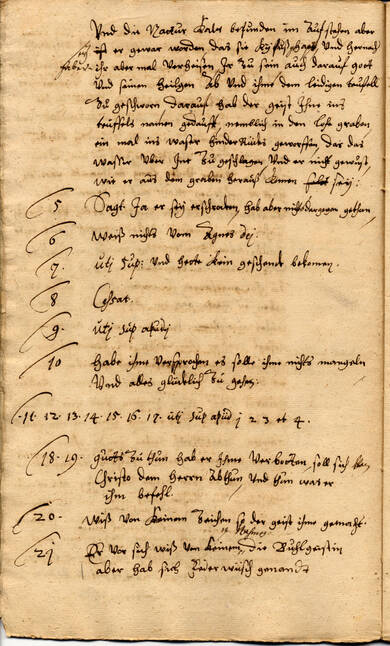 Und die Nattur Kalt befunden im Aufstehen aber
ist er gewar worden das sie Küefüß hab, Und hernach
sich
haben ihr aber mal Verheisen Ir zu sein auch darauf gott
Und seinen heiligen Ab Und ihme dem leidigen teuffel
Zu geschworn darauf hab der geist Ihne ins
teuffels namen getaufft, nemblich in den graben
ein mal ins waser hinder Rückhs geworffen, das das
wasser Uber Ine Zu geschlagen Und er nicht gewust
wie er aus dem graben heraus komen seÿ:
5 Sagt Ja er seÿ erschrockhen, hab aber nichts dargegen gethan,
6 Weiß nichts vom Agnus dei.
7. Uti sup: und heete kein geschenk bekomen.
8 Cessat.
9. Uti sup apud j
10 Habe ihme Versprochen es solle ihme nichts mangeln
Und alles glücklich Zu gehen.
11. 12. 13. 14. 15. 16. 17. uti sup apud j 2 3 et 4.
18. 19. guetts Zu thun hab er Ihme Verbotten soll sich Von
Christo dem Herrn Abthun Und thun was er
ihm befehl.
20. Wiß von keinem Zeichen so der geist ihme gemacht.
Nahmen
21 Er vor sich wiß von keinem, die Buhlgeistin
aber hab sich Federwüsch genandt